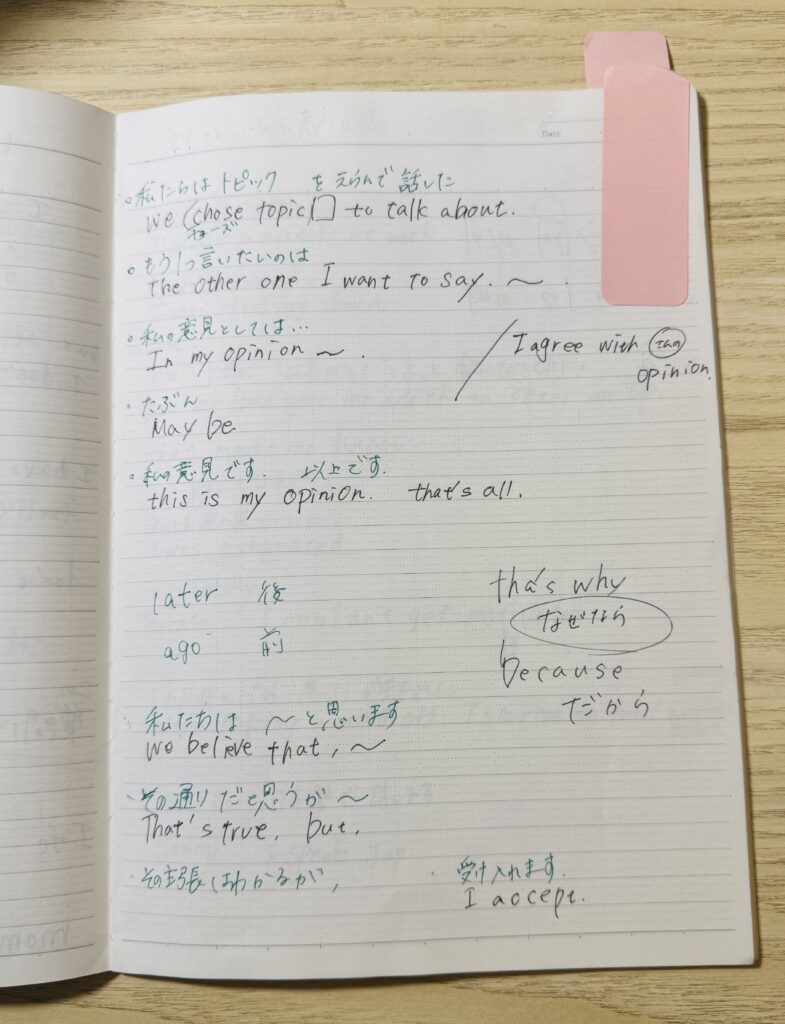 Date
。私たちはトピック を えらんで 話した
we (chose topic)□ to talk about.
チョーズ
。もう1つ言いたいのは
The other one I want to say. 〜 .
。私の意見としては…
In my opinion 〜 .
I agree with
opinion.
。たぶん
May be
。私の意見です. 以上です.
this is my opinion. that's all.
later 後
tha's why
なぜなら
ago 前
because
だから
私たちは 〜と思います
we believe that, 〜
、その通りだと思うが〜
That's true, but,
・その主張はわかるが,
・ 受け入れます.
I aocept.